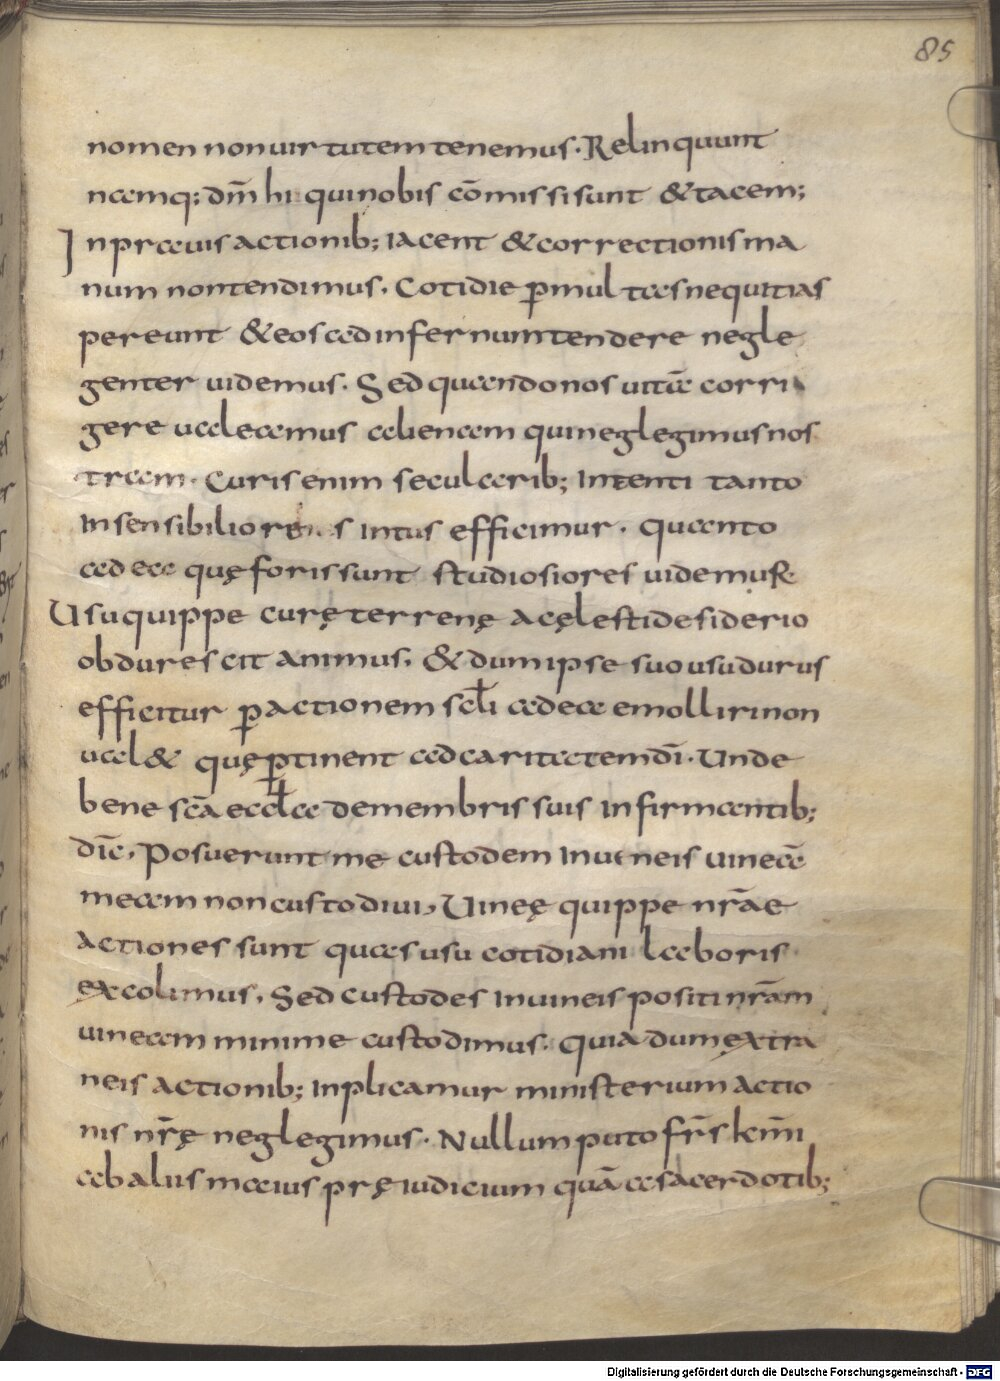 85
nomen non uirtutem tenemus. Relinquunt
namq; dm̄ hi qui nobis cōmissi sunt & tacem;
In prauis actionib; iacent & correctionis ma
num non tendimus. Cotidie ꝑ multas nequitias
pereunt & eos ad infernum tendere negle
genter uidemus. Sed quando nos uitā corri
gere ualeamus alienam qui neglegimus nos
tram. Curis enim secularib; intenti tanto
insensibiliores intus efficimur. quanto
ad ea quę foris sunt studiosiores uidemur.
Usu quippe curę terrenę a cęlesti desiderio
obdurescit animus. & dum ipse suo usu durus
efficitur ꝑ actionem scł̄i ad ea emolliri non
ual& quę ꝑtinent ad caritatem dī. Unde
bene scā eccła de membris suis infirmantib;
dīc. Posuerunt me custodem in uineis uineā
meam non custodiui. Uineę quippe nr̄ae
actiones sunt quas usu cotidiani laboris
excolimus. Sed custodes in uineis positi nr̄am
uineam minime custodimus. quia dum extra
neis actionib; inplicamur ministerium actio
nis nr̄ę neglegimus. Nullum puto fr̄s km̄i
ab aliis maius pręiudicium quā a sacerdotib;
Digitalisierung gefördert durch die Deutsche Forschungsgemeinschaft - DFG